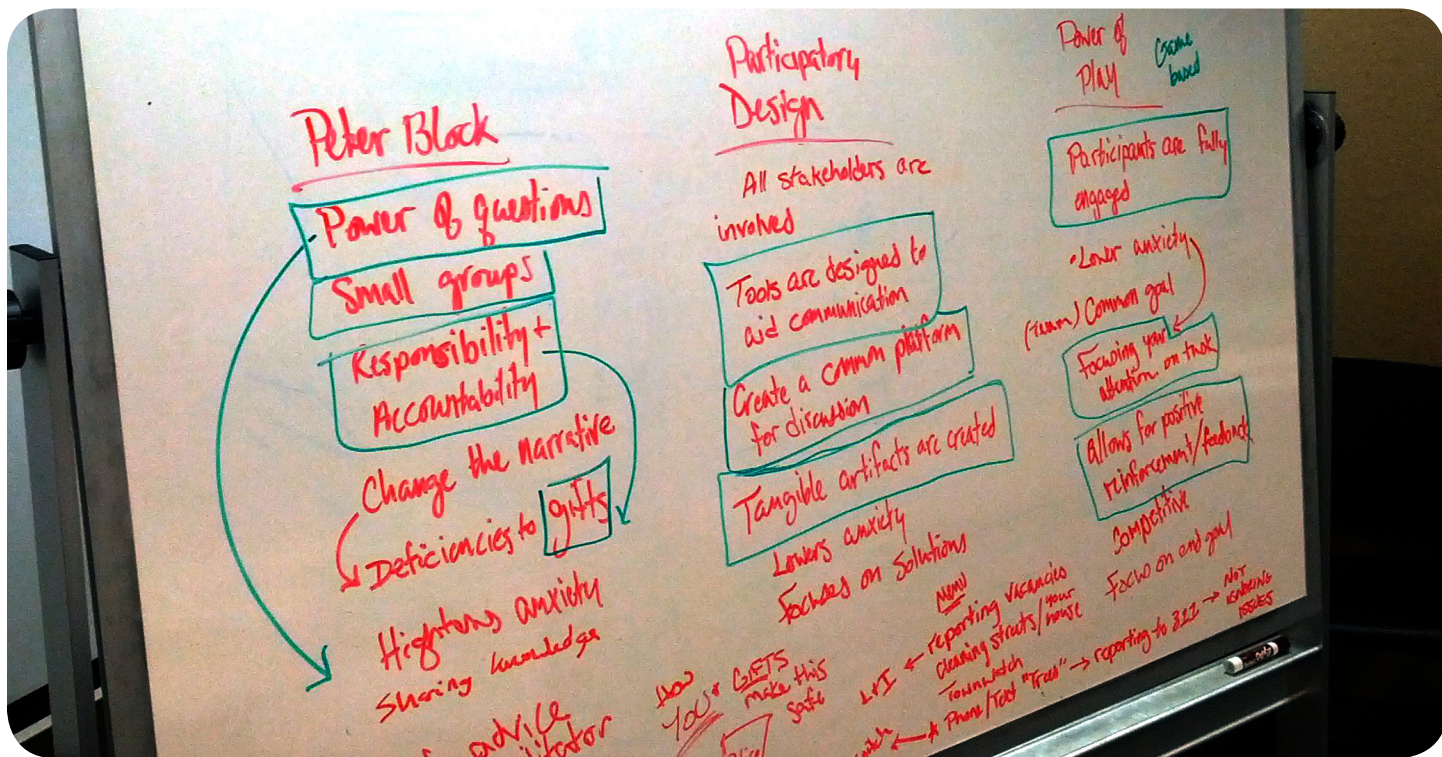 Peter Block
Power of questions
Small groups
Responsibility +
Accountability
Change the narrative
Deficiencies to gifts
Hightens anxiety
sharing knowledge
advice
Participatory
Design
All stakeholders are
involved
Tools are designed to
aid communication
Create a common platform
for discussion
Tangible artifacts are created
Lowers anxiety
Focuses on Solutions
Power of
Play
Game
based
Participants are fully
engaged
•Lower anxiety
(Team) Common goal
Focusing your
attention on task
Allows for positive
reinforcement/feedback
Competitive
Focus on end goal
How
YOUr GIFTS
make this
safe
Menu
L+I ← reporting vacancies
cleaning streets/your
house
Townwatch
Phone/Text "Tree" → reporting to 311 → NOT
IGNORING
ISSUES